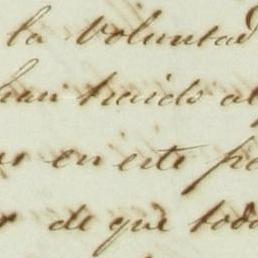 la voluntad
han traido al
en este pa
de que todo